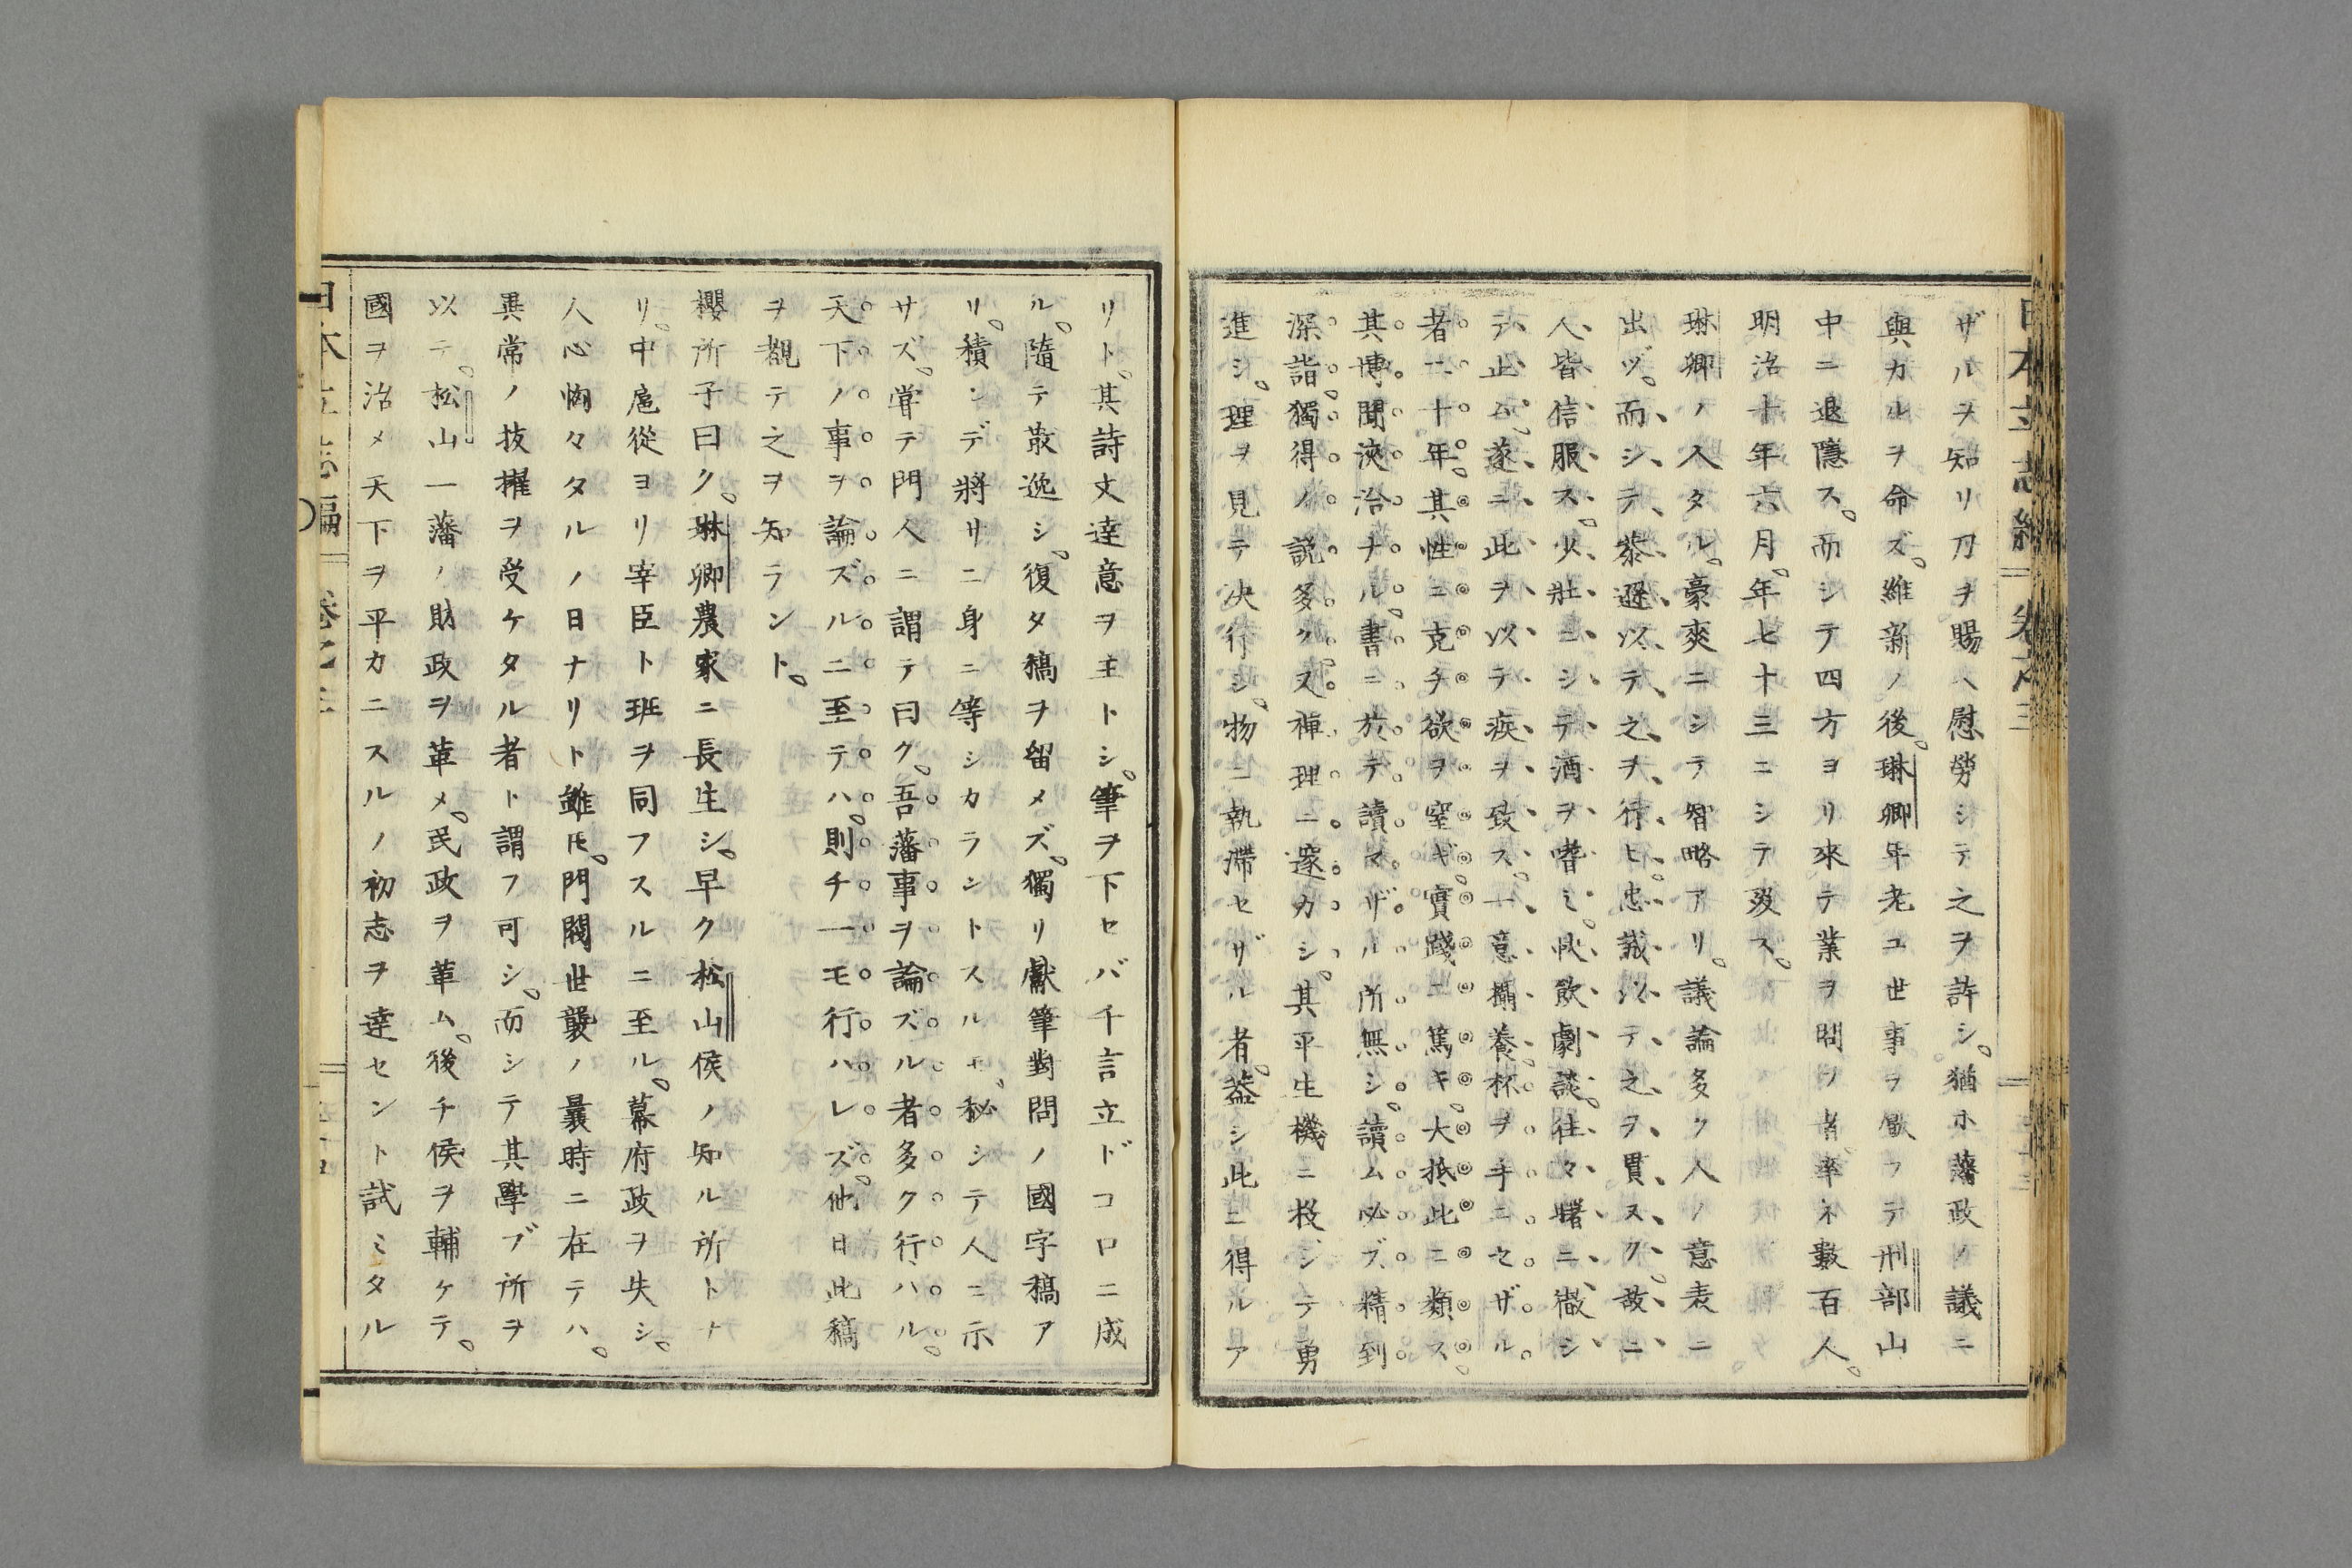 ザルヲ知リ刀ヲ賜ヘ慰勞シテ之ヲ許シ。猶ホ藩政ノ議ニ
與カルヲ命ズ。維新ノ後。琳卿年老ユ世事ヲ厭フテ刑部山
中ニ退隱ス。而シテ四方ヨリ來テ業ヲ問フ者率ネ數百人。
明治十年六月。年七十三ニシテ歿ス。
琳卿ノ人タル。豪爽ニシテ智略アリ。議論多ク人ノ意表ニ
出ヅ。而シテ恭遜以テ之ヲ行ヒ。忠誠以テ之ヲ貫ヌク。故ニ
人皆信服ス。少壯ニシテ酒ヲ嗜ミ。快飲劇談。往々曙ニ徹シ
テ止ム。遂ニ此ヲ以テ疾ヲ致ス。一意攝養。杯ヲ手ニセザル
者二十年。其性ニ克チ欲ヲ窒ギ。實踐ニ篤キ。大抵此ニ類ス。
其博聞浹洽ナル。書ニ於テ讀マザル所無シ。讀ム必ズ精到
深詣。獨得ノ説多ク。又禅理ニ邃カシ。其平生機ニ投シテ勇
進シ。理ヲ見テ決行シ。物ニ執滯セザル者。蓋シ此ニ得ルア
リト。其詩文達意ヲ主トシ。筆ヲ下セバ千言立ドコロニ成
ル。隨テ散逸シ。復タ稿ヲ留メズ。獨リ獻筆對問ノ國字稿ア
リ。積ンデ將サニ身ニ等シカラントスルモ。秘シテ人ニ示
サズ。甞テ門人ニ謂テ曰ク。吾藩事ヲ論ズル者多ク行ハル。
天下ノ事ヲ論ズルニ至テハ。則チ一モ行ハレズ。他日此稿
ヲ覩テ之ヲ知ラント。
櫻所子曰ク。琳卿農家ニ長生シ。早ク松山侯ノ知ル所トナ
リ。中扈從ヨリ宰臣ト班ヲ同フスルニ至ル。幕府政ヲ失シ。
人心恟々タルノ日ナリト雖𪜈。門閥世襲ノ曩時ニ在テハ。
異常ノ抜擢ヲ受ケタル者ト謂フ可シ。而シテ其學ブ所ヲ
以テ。松山一藩ノ財政ヲ革メ。民政ヲ革ム。後チ侯ヲ輔ケテ。
國ヲ治メ天下ヲ平カニスルノ初志ヲ達セント試ミタル